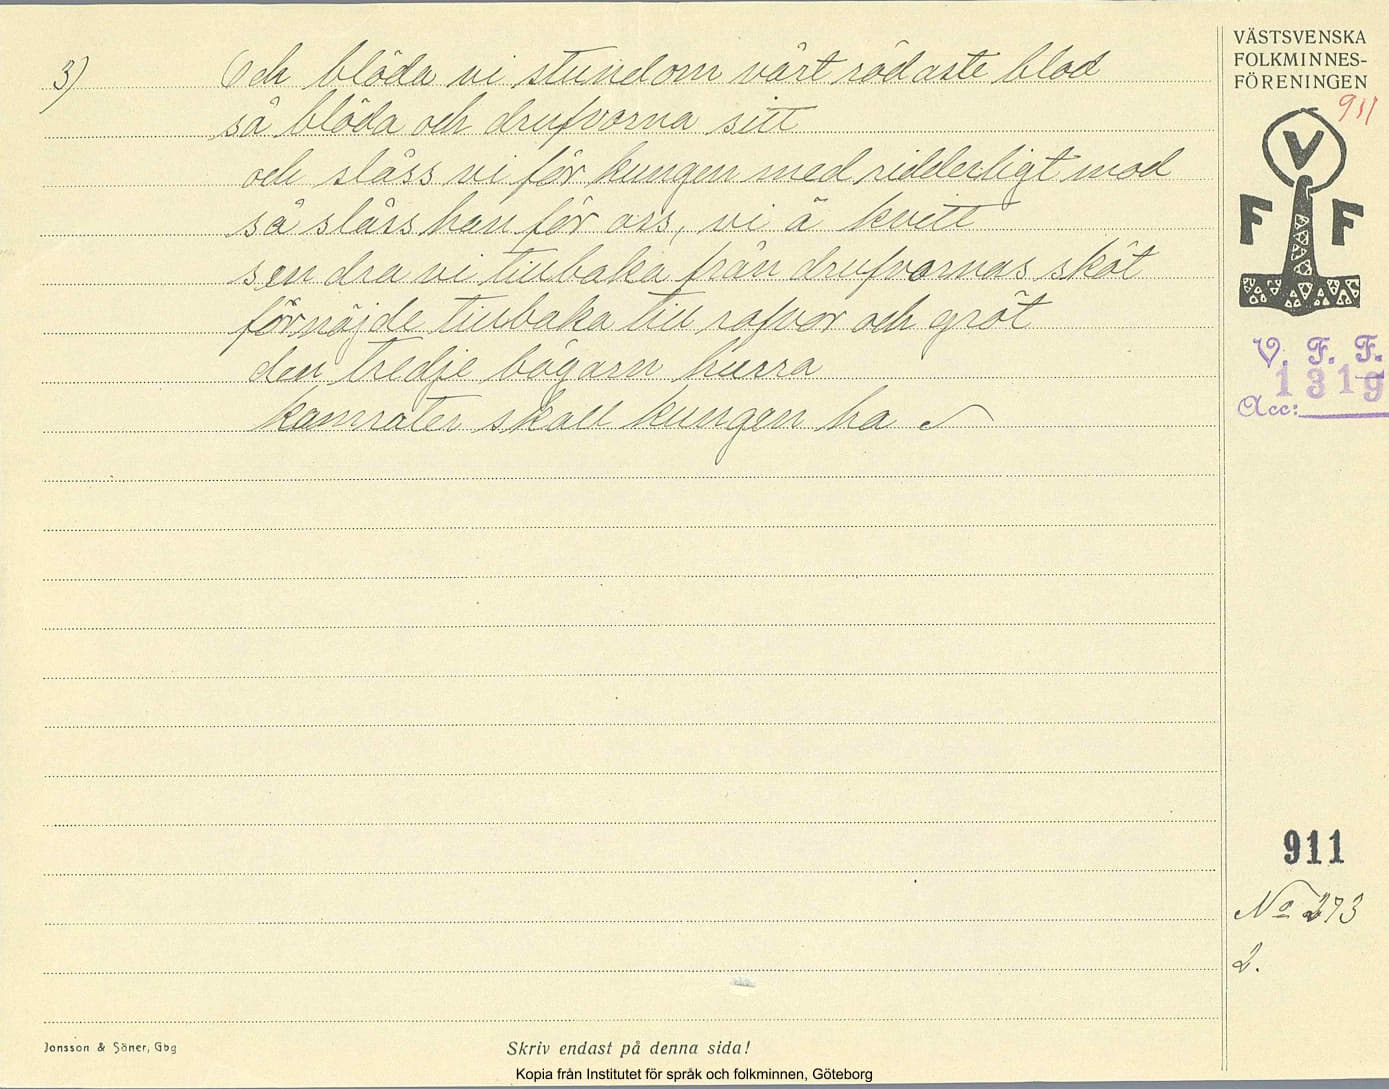 3) Och blöda vi stundom vårt rödaste blod
så blöda och drufvorna sitt
och slåss vi för kungen med ridderligt mod
så slåss han för oss, vi ä kvitt
sen dra vi tillbaka från drufvornas sköt
förnöjde tillbaka till rofvor och gröt
den tredje bägarn hurra
kamrater skall kungen ha
VÄSTSVENSKA
FOLKMINNES-
FÖRENINGEN
911
V
F F
V. F. F.
1319
Acc:
911
No 273
2.
Jonsson & Söner, Gbg
Skriv endast på denna sida!
Kopia från Institutet för språk och folkminnen, Göteborg